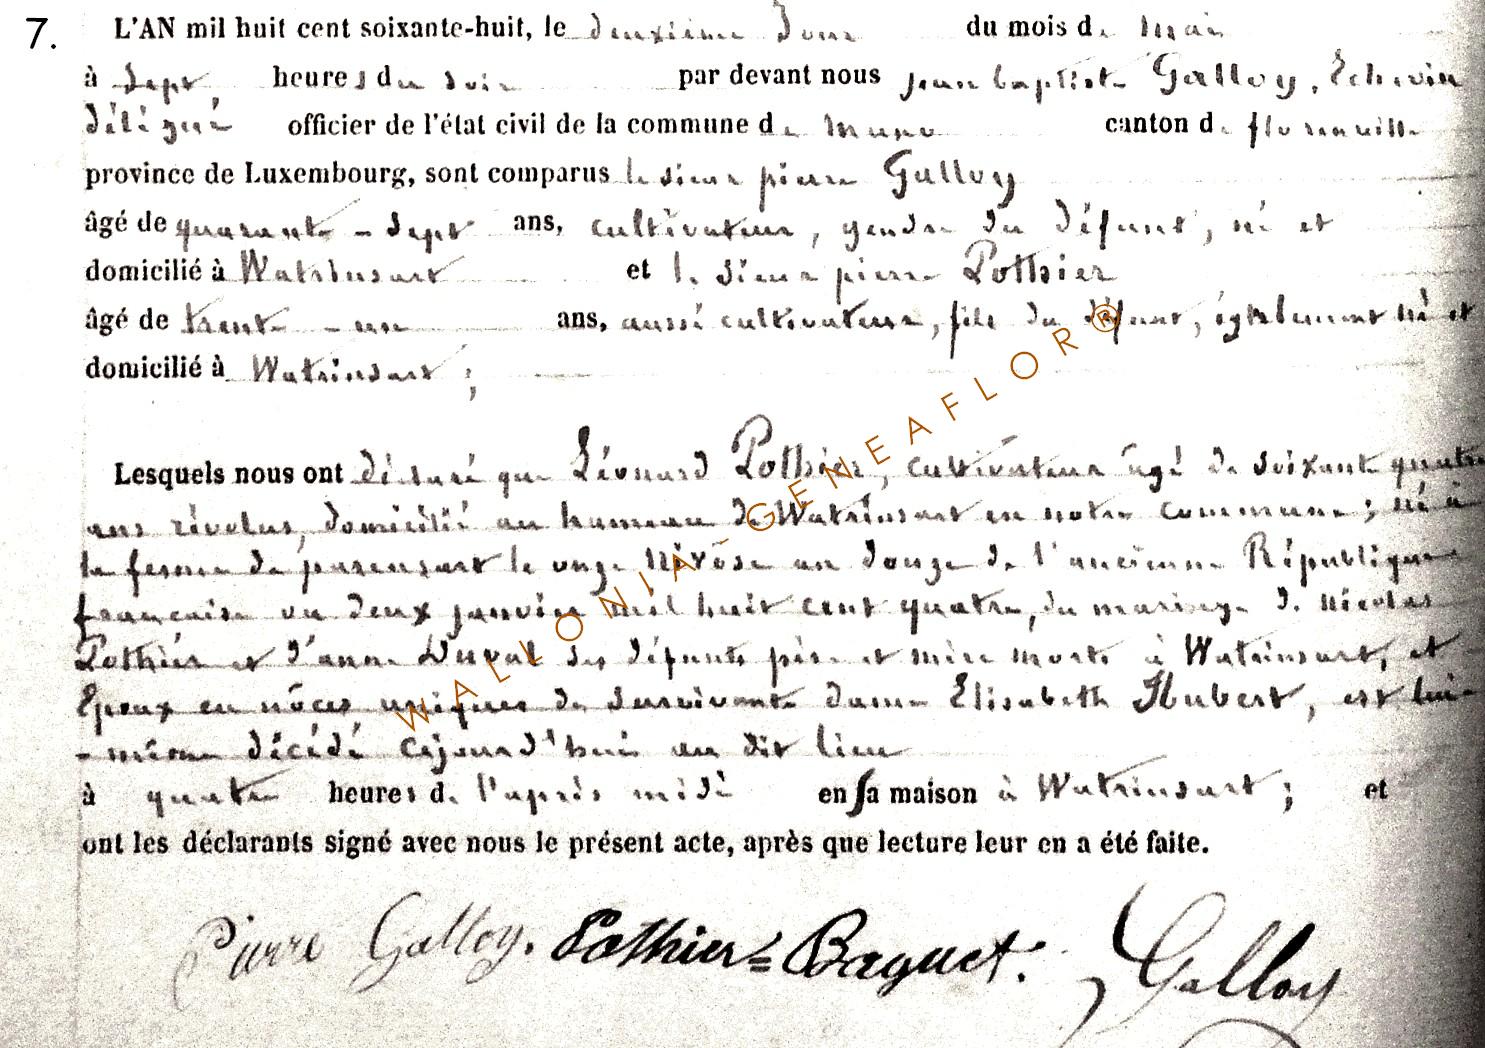 7. L'AN mil huit cent soixante-huit, le deuxième Jour du mois de mai
à Sept heures du soir par devant nous jean baptiste Galloy, Echevin
délégué officier de l'état civil de la commune de muno canton de florenville
province de Luxembourg, sont comparus le sieur pierre Galloy
âgé de quarante-sept ans, cultivateur, gendre du défunt, né et
domicilié à Watrinsart et le sieur pierre Pothier
âgé de trente-un ans, aussi cultivateur, fils du défunt, également né et
domicilié à Watrinsart;
Lesquels nous ont déclaré que Léonard Pothier, cultivateur âgé de soixante quatre
ans révolus, domicilié au hameau de Watrinsart en notre commune; né à
la ferme de parensart le onze Nivôse an douze de l'ancienne République
française ou deux janvier mil huit cent quatre, du mariage de nicolas
Pothier et d'anne Duval ses défunts père et mère morts à Watrinsart, et
Epoux en nôces uniques de survivante dame Elisabeth Hubert, est lui-
-même décédé cejourd'hui au dit lieu
à quatre heures de l'après midi en sa maison à Watrinsart; et
ont les déclarants signé avec nous le présent acte, après que lecture leur en a été faite.
Pierre Galloy. Pothier=Baguet. Galloy
WALLONIA-GENEAFLOR®